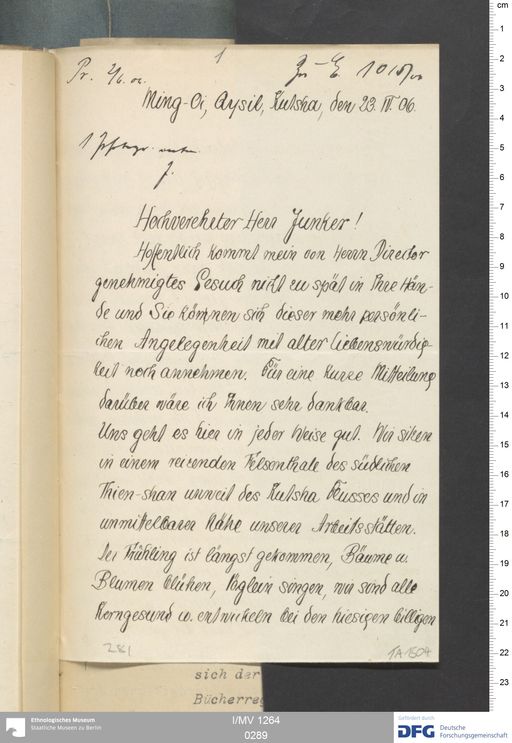 1
Pr. 2/6. 06.
Ming-Oi, Aysil, Kutsha, den 23. IV. 06.
1
J.
Hochverehrter Herr Junker!
Hoffentlich kommt mein von Herrn Director
genehmigtes Gesuch nicht zu spät in Ihre Hän-
de und Sie können sich dieser mehr persönli-
chen Angelegenheit mit alter Liebenswürdig-
keit noch annehmen. Für eine kurze Mitteilung
darüber wäre ich Ihnen sehr dankbar.
Uns geht es hier in jeder Weise gut. Wir sitzen
in einem reizenden Felsenthale des südlichen
Thien-shan unweit des Kutsha Flusses und in
unmittelbarer Nähe unserer Arbeitsstätten.
Der Frühling ist längst gekommen, Bäume u.
Blumen blühen, Vöglein singen, wir sind alle
kerngesund u. entwickeln bei den hiesigen billigen
281
TA 1504
sich der
Bücherre
Ethnologisches Museum
Staatliche Museen zu Berlin
I/MV 1264
0289
Gefördert durch
DFG Deutsche
Forschungsgemeinschaft
cm
1
2
3
4
5
6
7
8
9
10
11
12
13
14
15
16
17
18
19
20
21
22
23